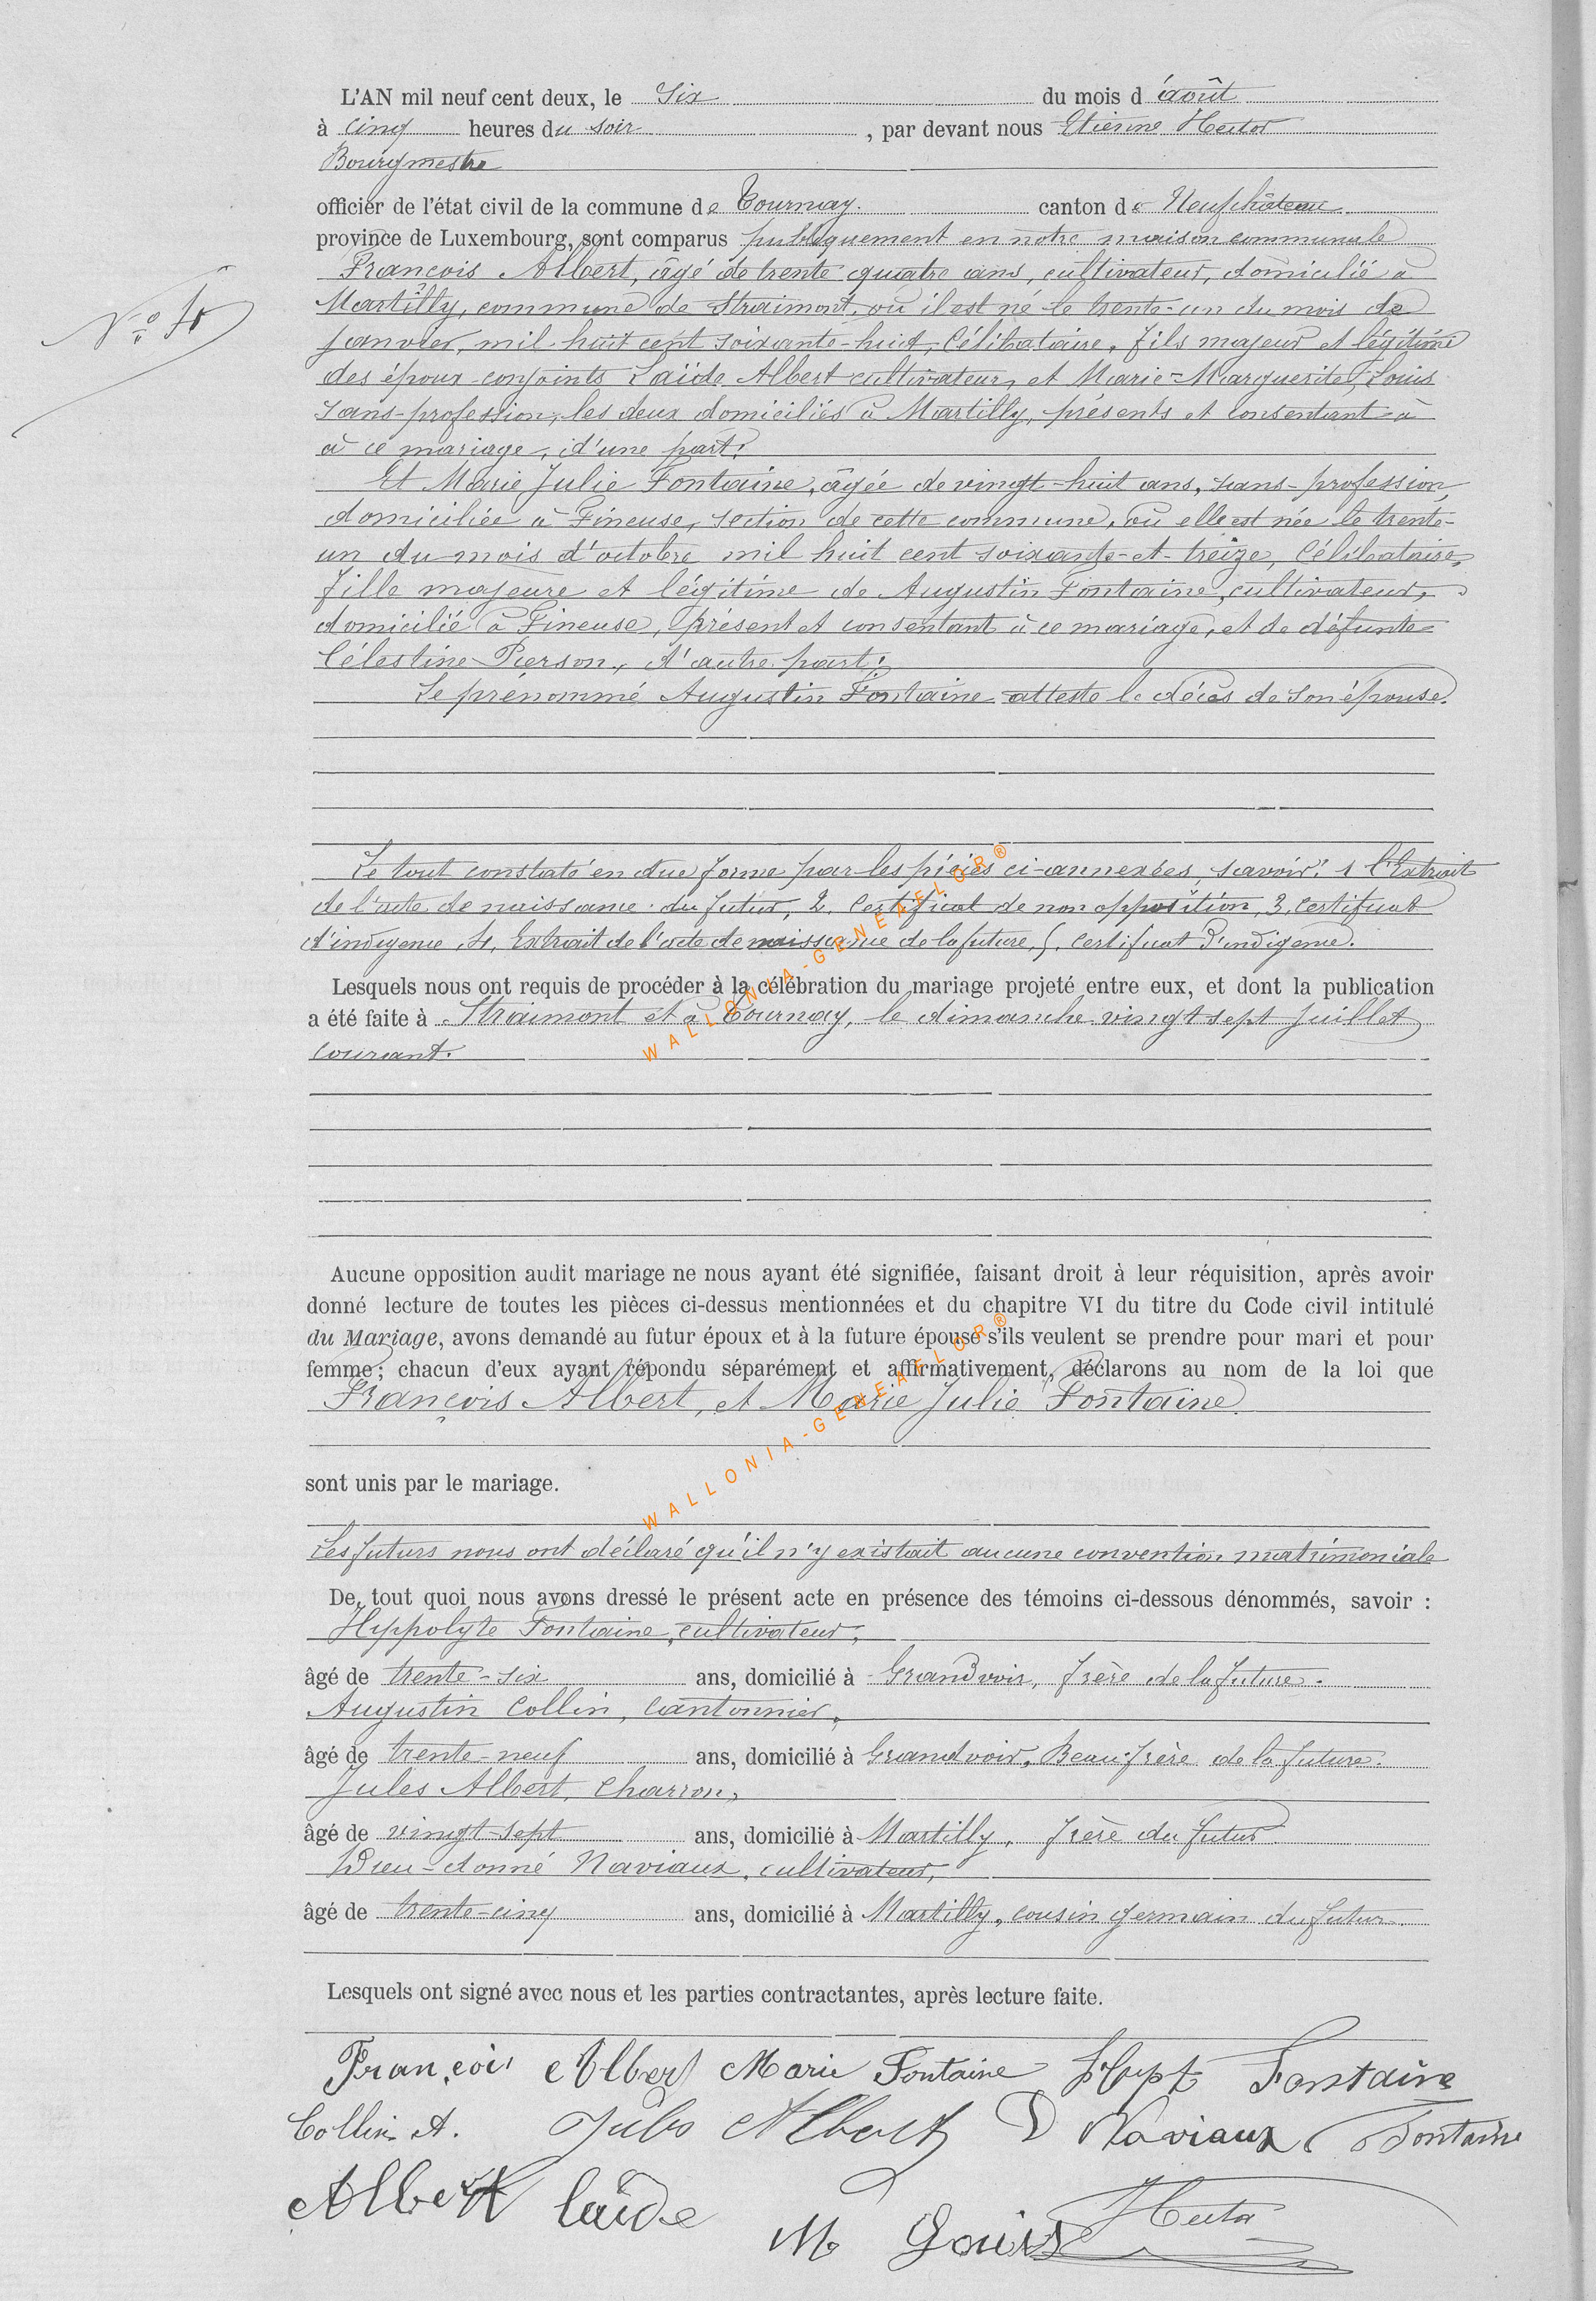 L'AN mil neuf cent deux, le Six du mois d'août
à cinq heures du soir, par devant nous Etienne Hector
Bourgmestre
officier de l'état civil de la commune de Tournay. canton de Neufchâteau
province de Luxembourg, sont comparus publiquement en notre maison communale
François Albert, âgé de trente quatre ans, cultivateur, domicilié à
Martilly, commune de Straimont, où il est né le trente-un du mois de
janvier, mil huit cent soixante-huit, Célibataire, fils majeur et légitime
des époux conjoints Laïde Albert cultivateur, et Marie-Marguerite Louis
sans-profession, les deux domiciliés à Martilly, présents et consentant à
à ce mariage, d'une part;
N° 4
Et Marie Julie Fontaine, âgée de vingt-huit ans, sans-profession,
domiciliée à Fineuse, section de cette commune, où elle est née le trente-
un du mois d'octobre mil huit cent soixante-et-treize, Célibataire,
fille majeure et légitime de Augustin Fontaine, cultivateur,
domicilié à Fineuse, présent et consentant à ce mariage, et de défunte
Célestine Pierson, d'autre part;
Le prénommé Augustin Fontaine atteste le décès de son épouse.
Le tout constaté en due forme par les pièces ci-annexées, savoir: 1 l'Extrait
de l'acte de naissance du futur, 2. Certificat de non opposition, 3. Certificat
d'indigence, 4. Extrait de l'acte de naissance de la future, 5. Certificat d'indigence.
Lesquels nous ont requis de procéder à la célébration du mariage projeté entre eux, et dont la publication
a été faite à Straimont et à Tournay, le dimanche vingt sept juillet
courant.
WALLONIA-GENEAFLOR®
Aucune opposition audit mariage ne nous ayant été signifiée, faisant droit à leur réquisition, après avoir
donné lecture de toutes les pièces ci-dessus mentionnées et du chapitre VI du titre du Code civil intitulé
du Mariage, avons demandé au futur époux et à la future épouse s'ils veulent se prendre pour mari et pour
femme; chacun d'eux ayant répondu séparément et affirmativement, déclarons au nom de la loi que
François Albert, et Marie Julie Fontaine
sont unis par le mariage.
WALLONIA-GENEAFLOR®
Les futurs nous ont déclaré qu'il n'y existait aucune convention matrimoniale
De tout quoi nous avons dressé le présent acte en présence des témoins ci-dessous dénommés, savoir :
Hyppolyte Fontaine, cultivateur,
âgé de trente-six ans, domicilié à Grandvoir, frère de la future.
Augustin Collin, Cantonnier,
âgé de trente-neuf ans, domicilié à Grandvoir, Beau-frère de la future.
Jules Albert, Charron,
âgé de vingt-sept ans, domicilié à Martilly, frère du futur
Dieu-donné Naviaux, cultivateur,
âgé de trente-cinq ans, domicilié à Martilly, cousin germain du futur.
Lesquels ont signé avec nous et les parties contractantes, après lecture faite.
François Albert Marie Fontaine Hypt Fontaine
Collin A. Jules Albert D Naviaux Fontaine
Albert laïde M Louis Hector